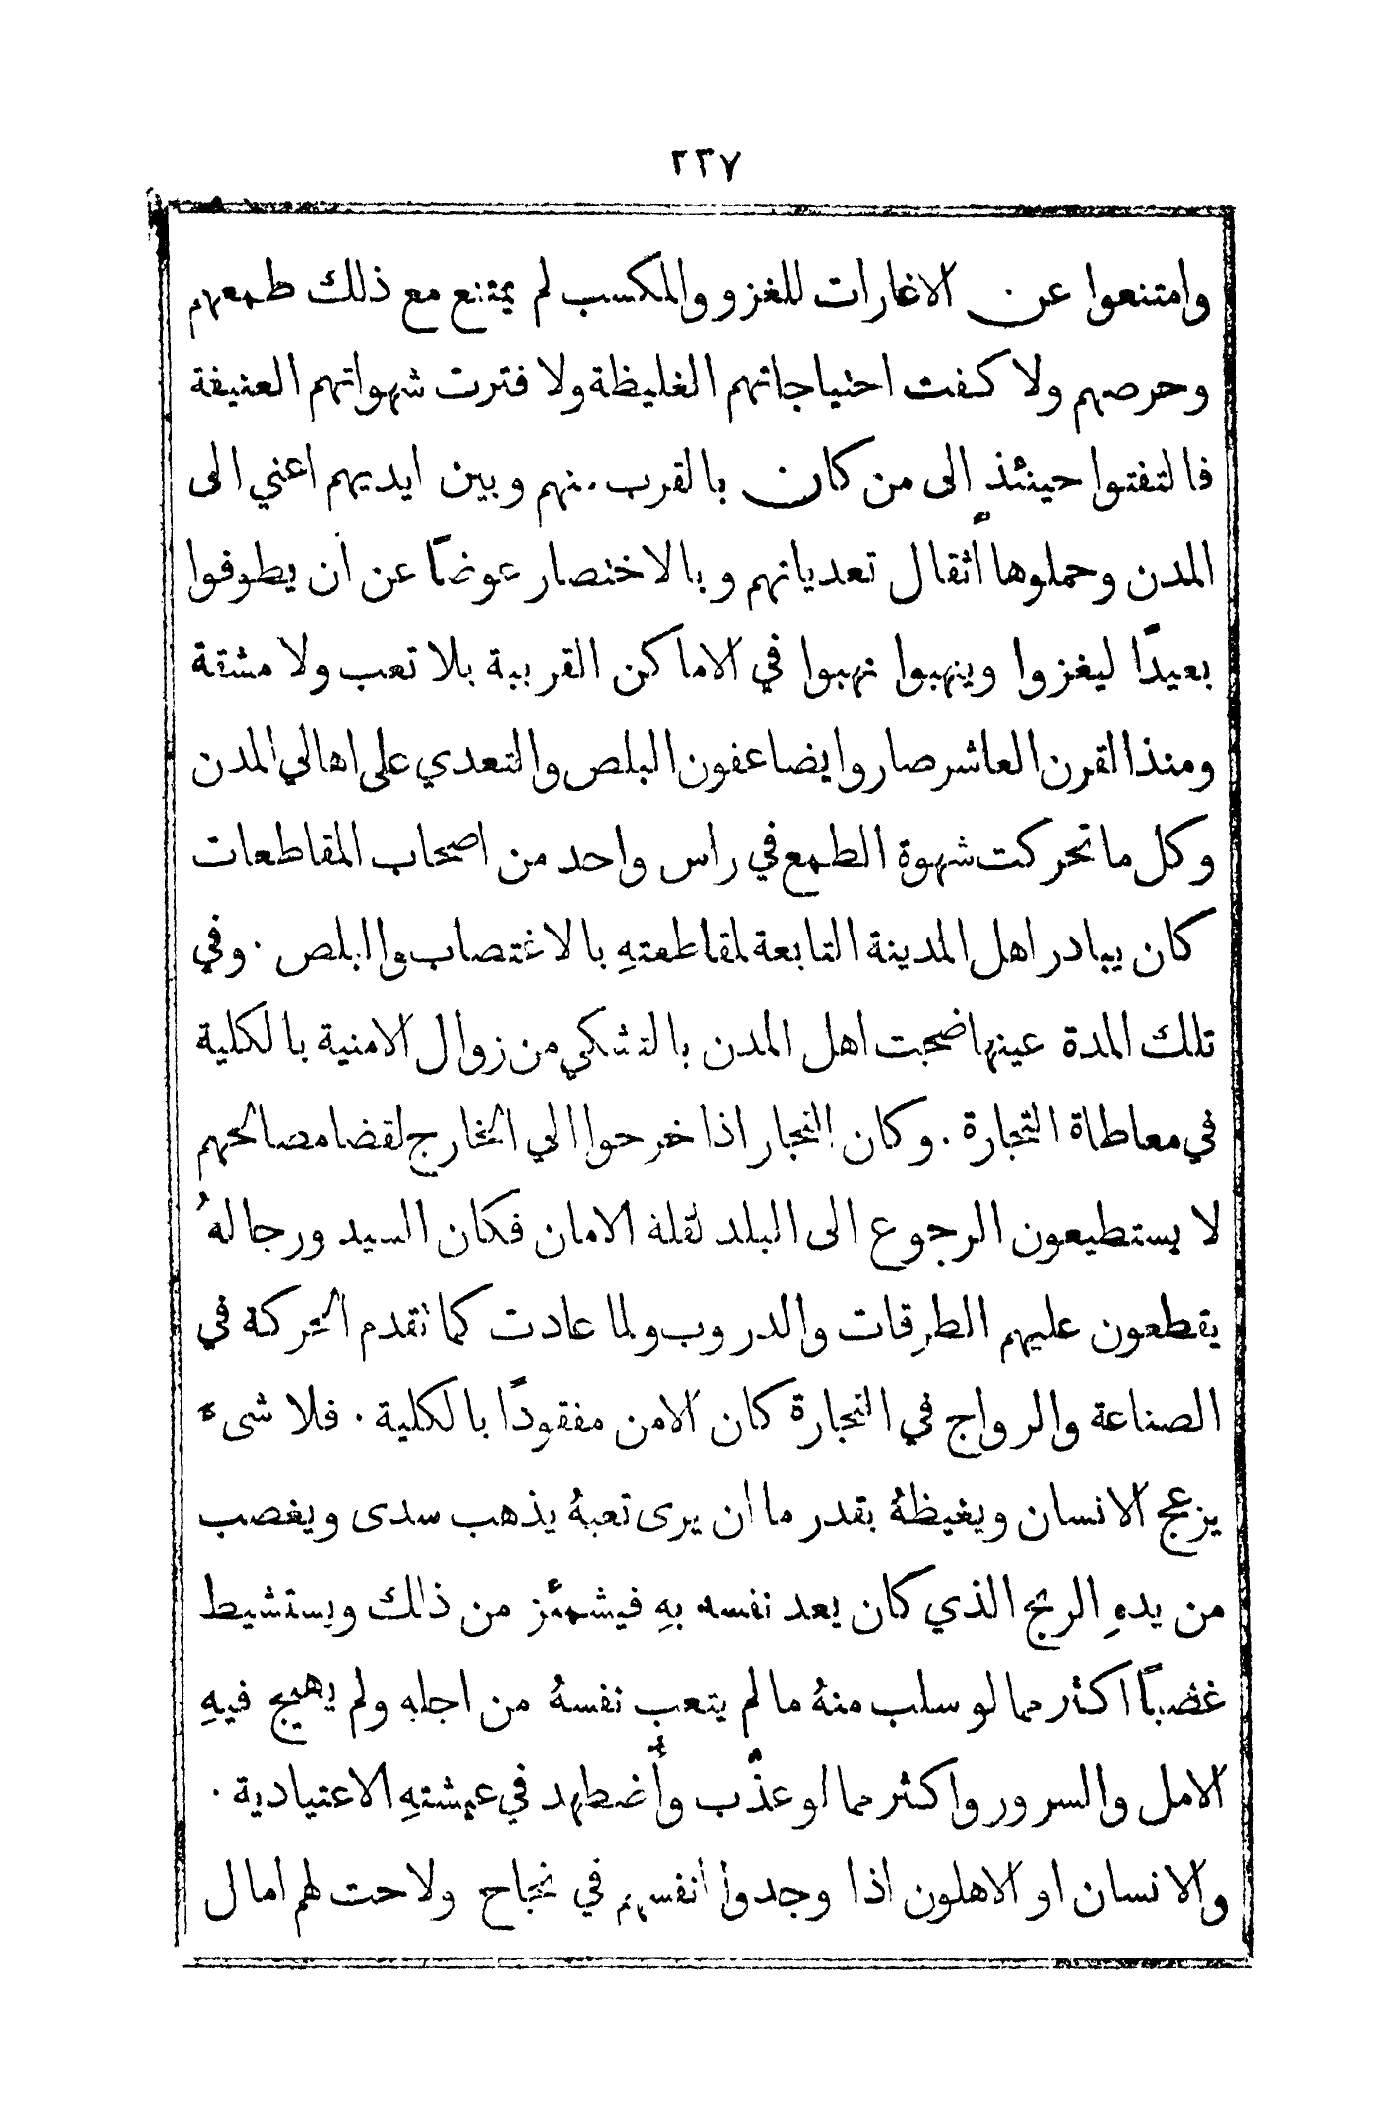 ٢٣٧
وامتنعوا عن الاغارات للغزو والمكسب لم يمتنع مع ذلك طمعهم
وحرصهم ولا كفت احتياجاتهم الغليظة ولا فترت شهواتهم العنيفة
فالتفتوا حينئذٍ الى من كان بالقرب منهم وبين ايديهم اعني الى
المدن وحملوها أثقال تعدياتهم وبالاختصار عوضًا عن ان يطوفوا
بعيدًا ليغزوا وينهبوا نهبوا في الاماكن القريبة بلا تعب ولا مشقة
ومنذ القرن العاشر صاروا يضاعفون البلص والتعدي على اهالي المدن
وكل ما تحركت شهوة الطمع في راس واحد من اصحاب المقاطعات
كان يبادر اهل المدينة التابعة لمقاطعتهِ بالاغتصاب والبلص . وفي
تلك المدة عينها ضجت اهل المدن بالتشكي من زوال الامنية بالكلية
في معاطاة التجارة . وكان التجار اذا خرجوا الى الخارج لقضا مصالحهم
لا يستطيعون الرجوع الى البلد لقلة الامان فكان السيد ورجالهُ
يقطعون عليهم الطرقات والدروب ولما عادت كما تقدم الحركة في
الصناعة والرواج في التجارة كان الامن مفقودًا بالكلية . فلا شيء
يزعج الانسان ويغيظهُ بقدر ما ان يرى تعبهُ يذهب سدى ويغصب
من يدهِ الربح الذي كان يعد نفسه بهِ فيشمئز من ذلك ويستشيط
غضبًا اكثر مما لو سلب منهُ ما لم يتعب نفسهُ من اجله ولم يهيج فيهِ
الامل والسرور واكثر مما لو عذّب وأضطهد في عيشتهِ الاعتيادية .
والانسان او الاهلون اذا وجدوا انفسهم في نجاح ولاحت لهم امال